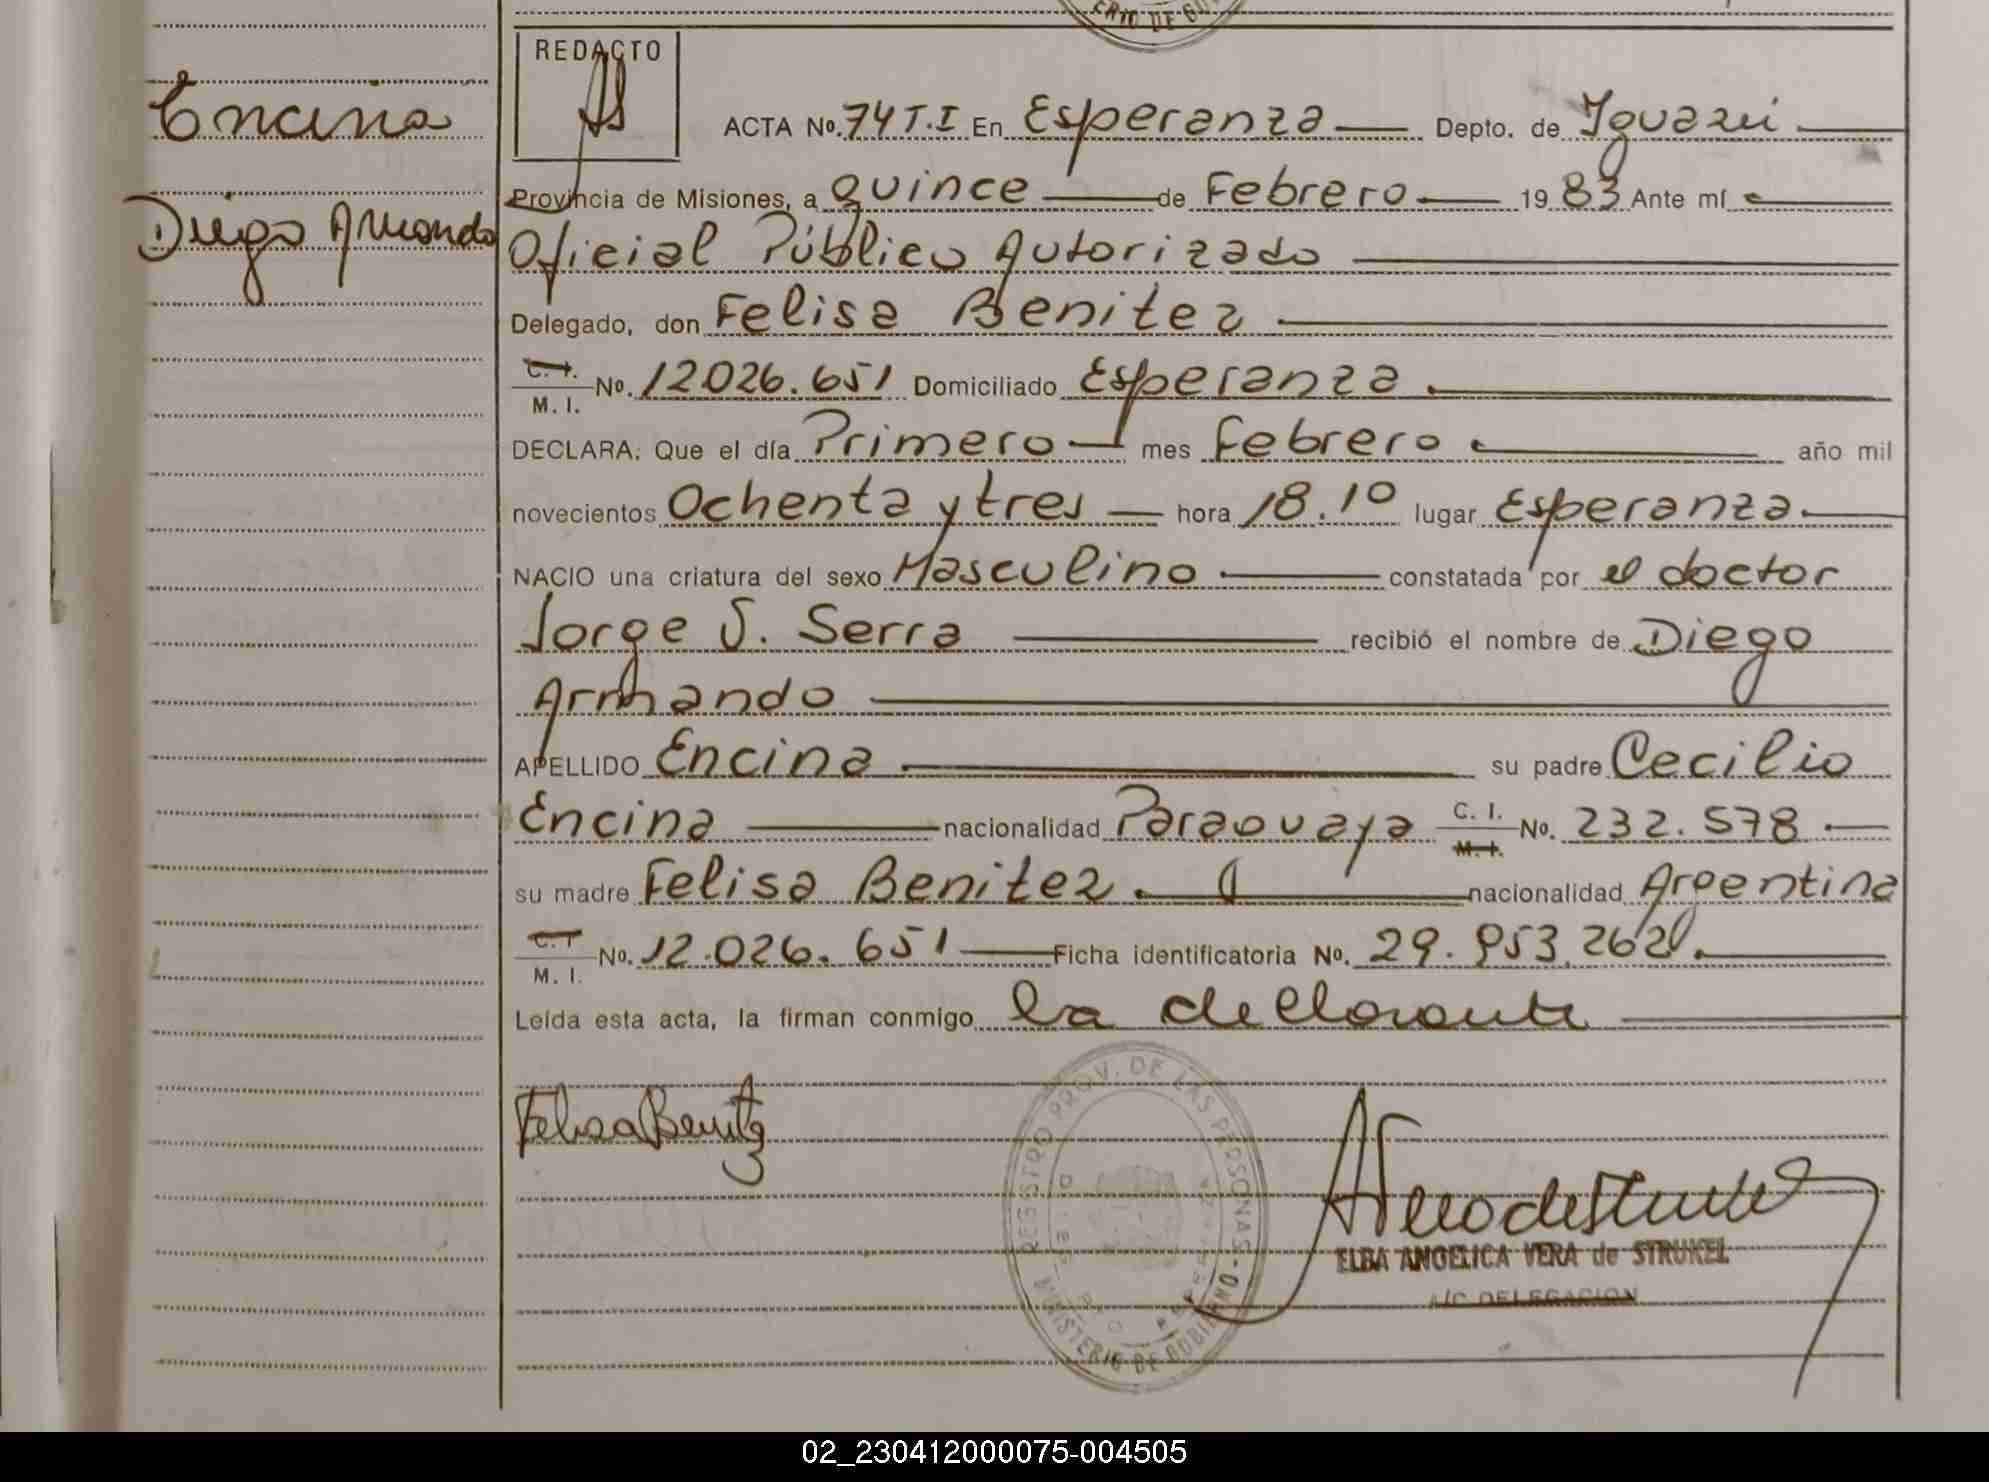 ERIO DE GO
REDACTO
Encina
ACTA No. 74 T.I En Esperanza Depto. de Iguazú
Diego Armando
Provincia de Misiones, a quince de Febrero 1983 Ante mí
Oficial Público Autorizado
Delegado, don Felisa Benitez
C. I.
M. I. No. 12026.651 Domiciliado Esperanza
DECLARA: Que el día Primero mes Febrero año mil
novecientos Ochenta y tres hora 18.10 lugar Esperanza
NACIO una criatura del sexo Masculino constatada por el doctor
Jorge S. Serra recibió el nombre de Diego
Armando
APELLIDO Encina su padre Cecilio
Encina nacionalidad Paraguaya C. I. M. I. No. 232.578
su madre Felisa Benitez nacionalidad Argentina
C. I.
M. I. No. 12.026.651 Ficha identificatoria No. 29.953.262
Leída esta acta, la firman conmigo la declarante
Felisa Benitez
REGISTRO PROV. DE LAS PERSONAS
MINISTERIO DE GOBIERNO
ELBA ANGELICA VERA de STRUKEL
A/C DELEGACION
02_230412000075-004505